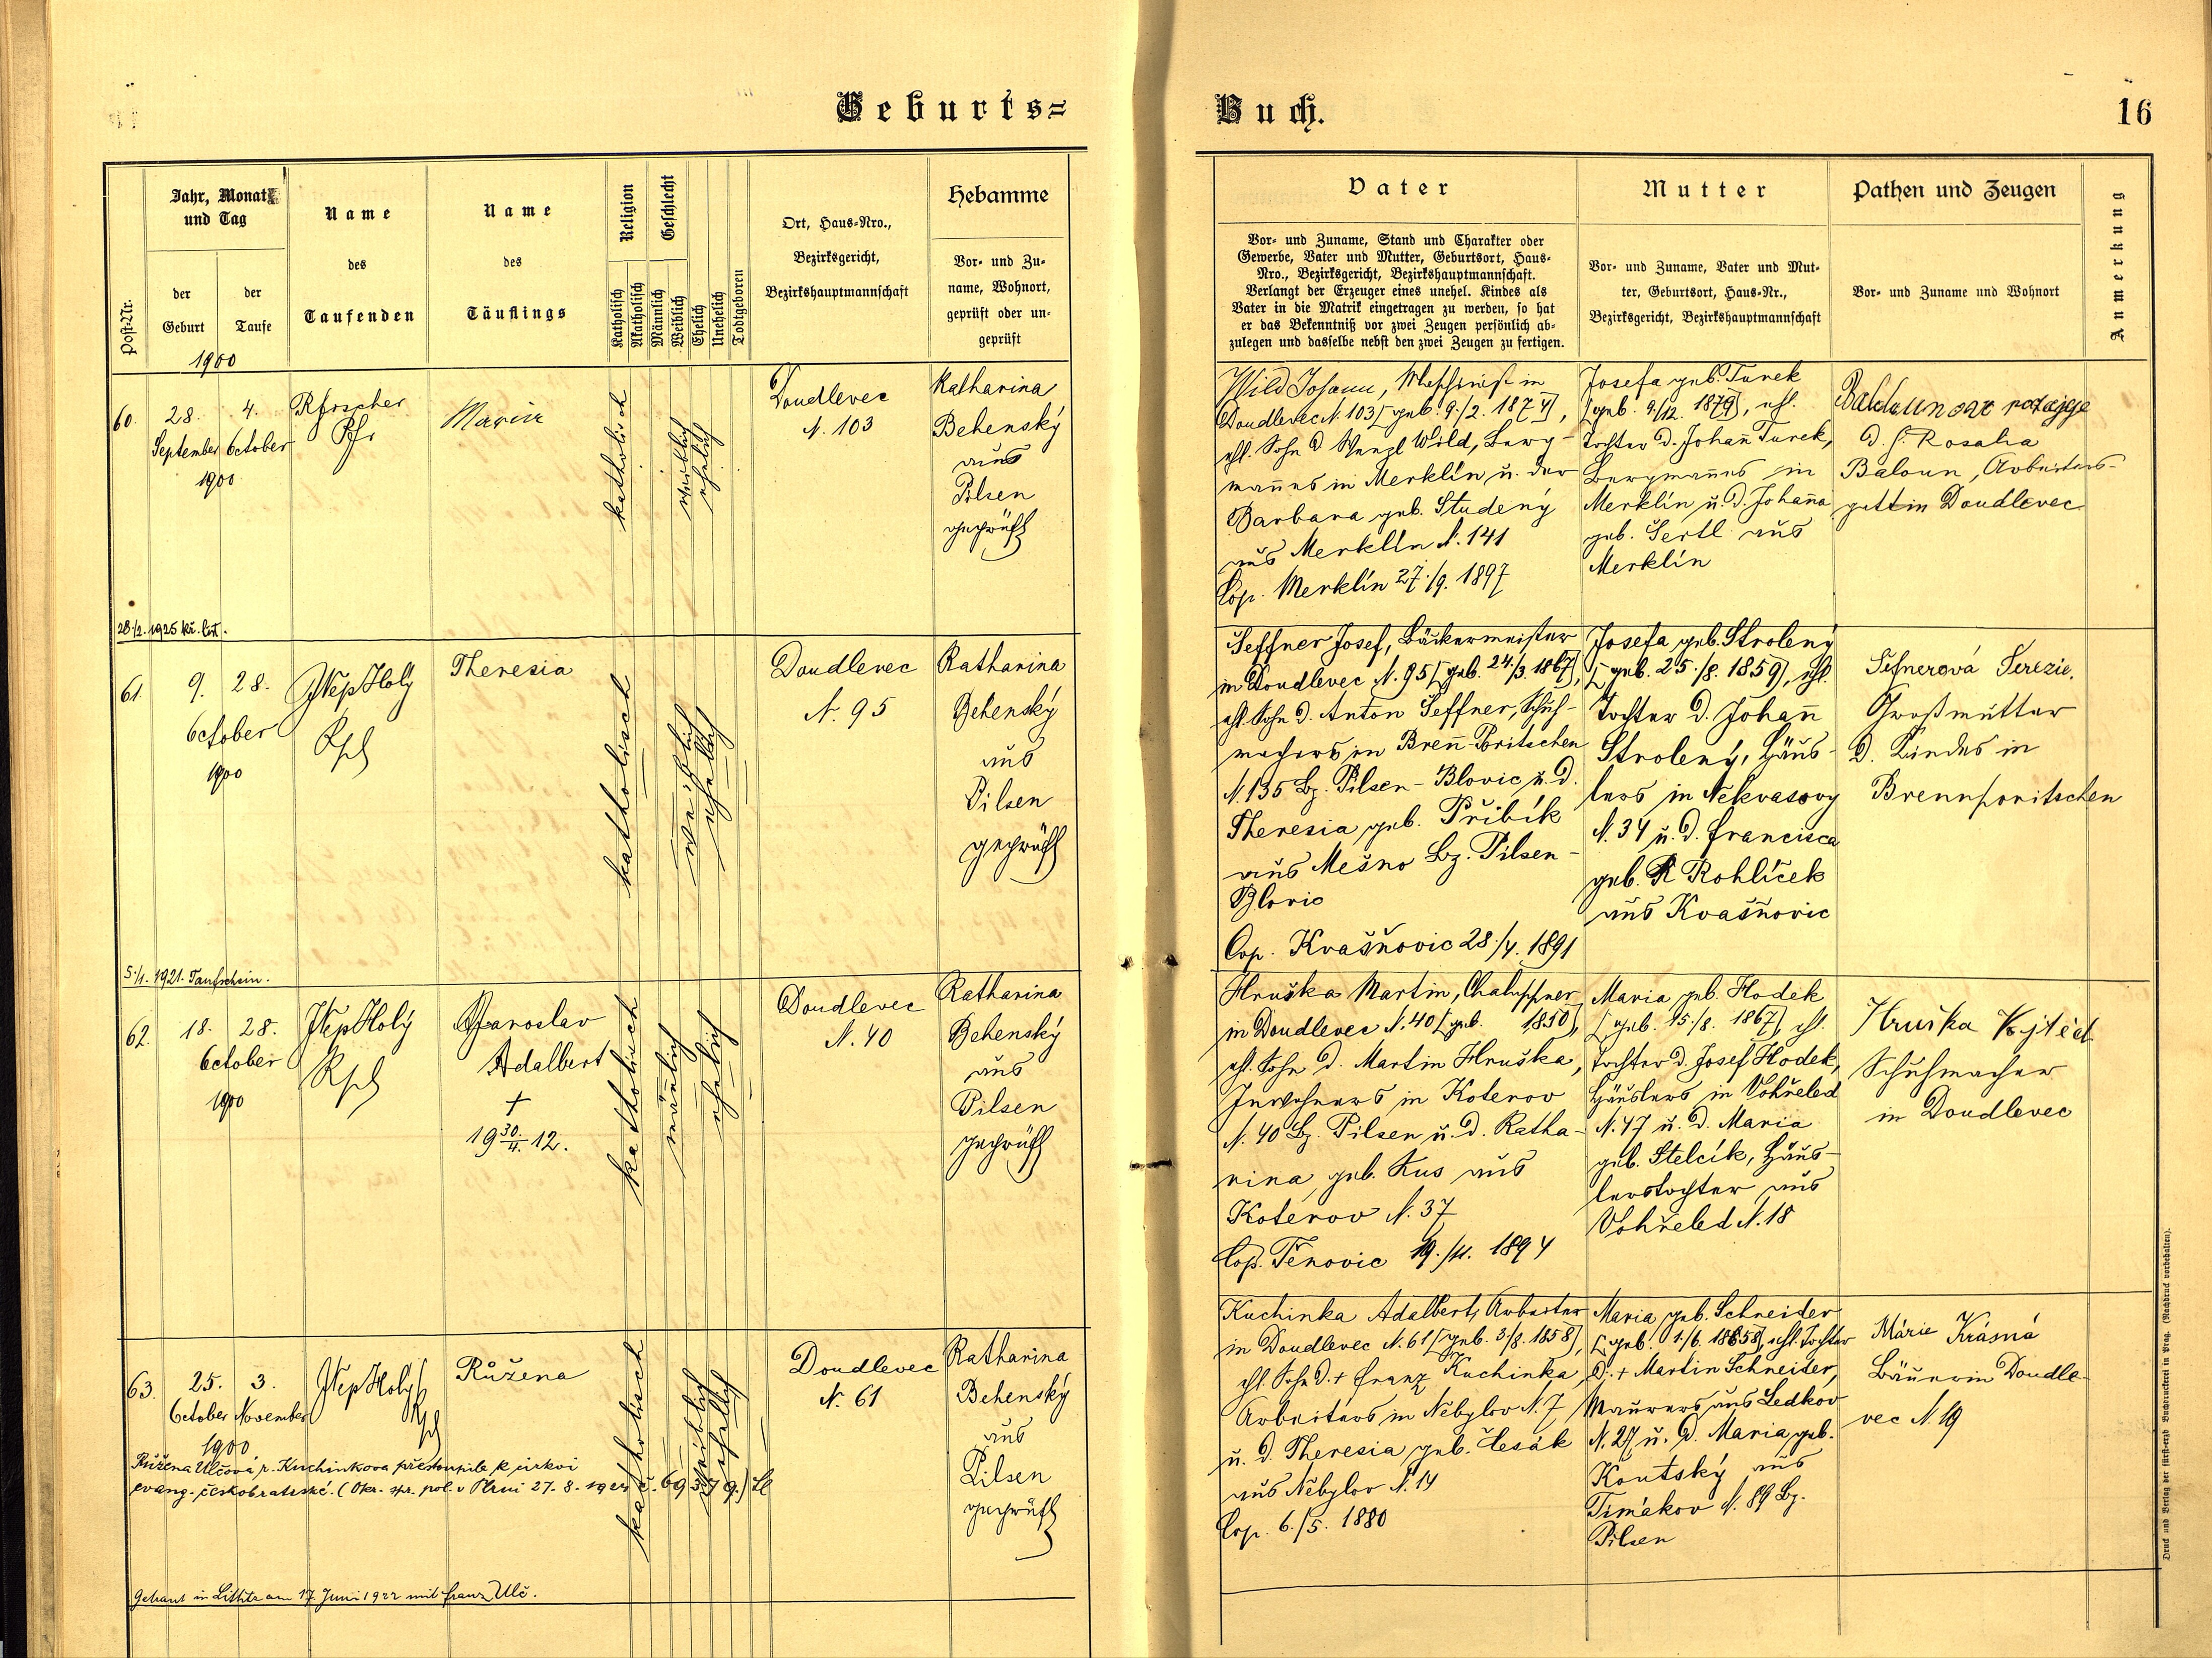 Geburts=
Jahr, Monat
und Tag
der
Geburt
der
Taufe
Post-Nr.
Name
des
Taufenden
Name
des
Täuflings
Religion
Katholisch
Akatholisch
Geschlecht
Männlich
Weiblich
Ehelich
Unehelich
Todtgeboren
Ort, Haus-Nro.,
Bezirksgericht,
Bezirkshauptmannschaft
Hebamme
Vor- und Zu-
name, Wohnort,
geprüft oder un-
geprüft
1900
60.
28.
4.
September October
1900
Pfr
Maria
katholisch
weiblich
ehelich
Doudlevec
N. 103
Katharina
Behenský
aus
Pilsen
geprüft
28./2. 1925 kř. list.
61.
9. 28.
October
1900
JNep Holý
Theresia
katholisch
weiblich
ehelich
Doudlevec
N. 95
Katharina
Behenský
aus
Pilsen
geprüft
5./1. 1921. Taufschein.
62.
18. 28.
October
1900
JNep Holý
Jaroslav
Adalbert
+
19 30./4. 12.
katholisch
männlich
ehelich
Doudlevec
N. 40
Katharina
Behenský
aus
Pilsen
geprüft
63.
25. 3.
October November
1900
JNep Holý
Růžena
katholisch
weiblich
ehelich
Doudlevec
N. 61
Katharina
Behenský
aus
Pilsen
geprüft
Růžena Ulčová r. Kuchinkova přestoupila k církvi
evang. českobratrské. (Okr. spr. pol. v Plzni 27. 8. 192
Getraut in Littitz am 17. Juni 1922 mit Franz Ulč.
Buch.
16
Vater
Vor- und Zuname, Stand und Charakter oder
Gewerbe, Vater und Mutter, Geburtsort, Haus-
Nro., Bezirksgericht, Bezirkshauptmannschaft.
Verlangt der Erzeuger eines unehel. Kindes als
Vater in die Matrik eingetragen zu werden, so hat
er das Bekenntniß vor zwei Zeugen persönlich ab-
zulegen und dasselbe nebst den zwei Zeugen zu fertigen.
Mutter
Vor- und Zuname, Vater und Mut-
ter, Geburtsort, Haus-Nr.,
Bezirksgericht, Bezirkshauptmannschaft
Pathen und Zeugen
Vor- und Zuname und Wohnort
Anmerkung
Wild Johann, Maschinist in
Doudlevec N. 103 [geb. 9./2. 1874],
ehl. Sohn d. Wenzl Wild, Berg-
mannes in Merklín u. der
Barbara geb. Studený
aus Merklín N. 141
Cop. Merklín 27./9. 1897
Josefa geb. Turek
[geb. 9./12. 1879], ehl.
Tochter d. Johann Turek,
Bergmannes in
Merklín u. d. Johanna
geb. Sertl aus
Merklín
d. h. Rosalia
Baloun, Arbeiters-
gattin Doudlevec
Šeffner Josef, Bäckermeister
in Doudlevec N. 95 [geb. 24./3. 1867],
ehl. Sohn d. Anton Šeffner, Schuh-
machers in Brenn-Poritschen
N. 135 Bz. Pilsen-Blovic u. d.
Theresia geb. Přibík
aus Mešno Bz. Pilsen-
Blovic
Cop. Kvašňovic 28./4. 1891
Josefa geb. Strolený
[geb. 25./8. 1859], ehl.
Tochter d. Johann
Strolený, Häus-
lers in Nekvasovy
N. 34 u. d. Francisca
geb. Rohlíček
aus Kvašňovic
Šefnerová Terezie,
Großmutter
d. Kindes in
Brennporitschen
Hruška Martin, Chaluppner
in Doudlevec N. 40 [geb. 1850],
ehl. Sohn d. Martin Hruška,
Inwohners in Koterov
N. 40 Bz. Pilsen u. d. Katha-
rina, geb. Kus aus
Koterov N. 37
Cop. Těnovic 19./11. 1894
Maria geb. Hodek
[geb. 15./8. 1867], ehl.
Tochter d. Josef Hodek,
Häuslers in Vohřeled
N. 47 u. d. Maria
geb. Stelcík, Häus-
lerstochter aus
Vohřeled N. 18
Hruška Vojtěch
Schuhmacher
in Doudlevec
Kuchinka Adalbert, Arbeiter
in Doudlevec N. 61 [geb. 3/8. 1858],
ehl. Sohn d. + Franz Kuchinka,
Arbeiters in Nebylov N. 7
u. d. Theresia geb. Česák
aus Nebylov N. 14
Cop. 6./5. 1880
Maria geb. Schneider
[geb. 1./6. 1858], ehl. Tochter
d. + Martin Schneider,
Maurers aus Ledkov
N. 27 u. d. Maria geb.
Koutský aus
Timákov N. 89 Bz.
Pilsen
Márie Krásná
Bäuerin Doudle-
vec N. 19
Druck und Verlag der fürst-erzb. Buchdruckerei in Prag. (Nachdruck vorbehalten).